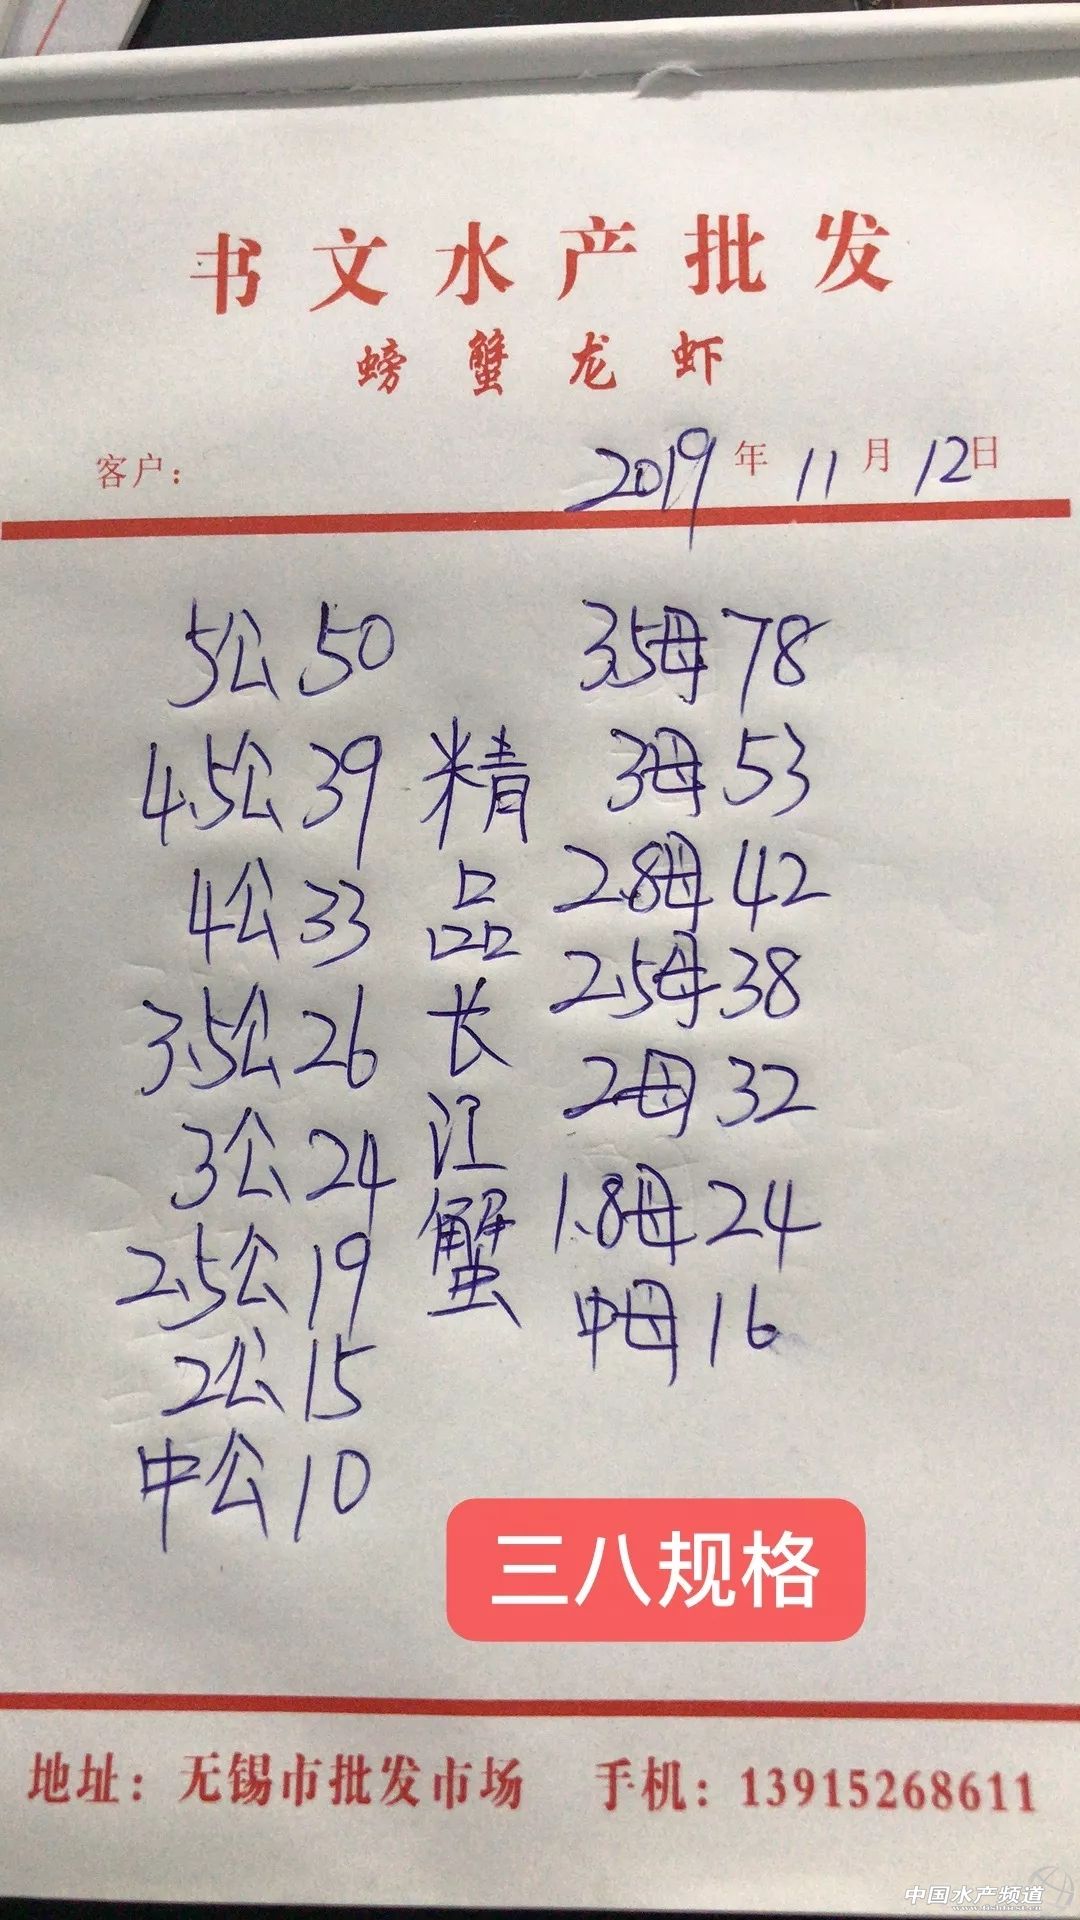 书文水产批发
螃蟹龙虾
客户：
2019年11月12日
5公50
4.5公39
4公33
3.5公26
3公24
2.5公19
2公15
中公10
精品长江蟹
3.5母78
3母53
2.8母42
2.5母38
2母32
1.8母24
中母16
三八规格
地址：无锡市批发市场 手机：13915268611
中国水产频道
www.fishfirst.cn